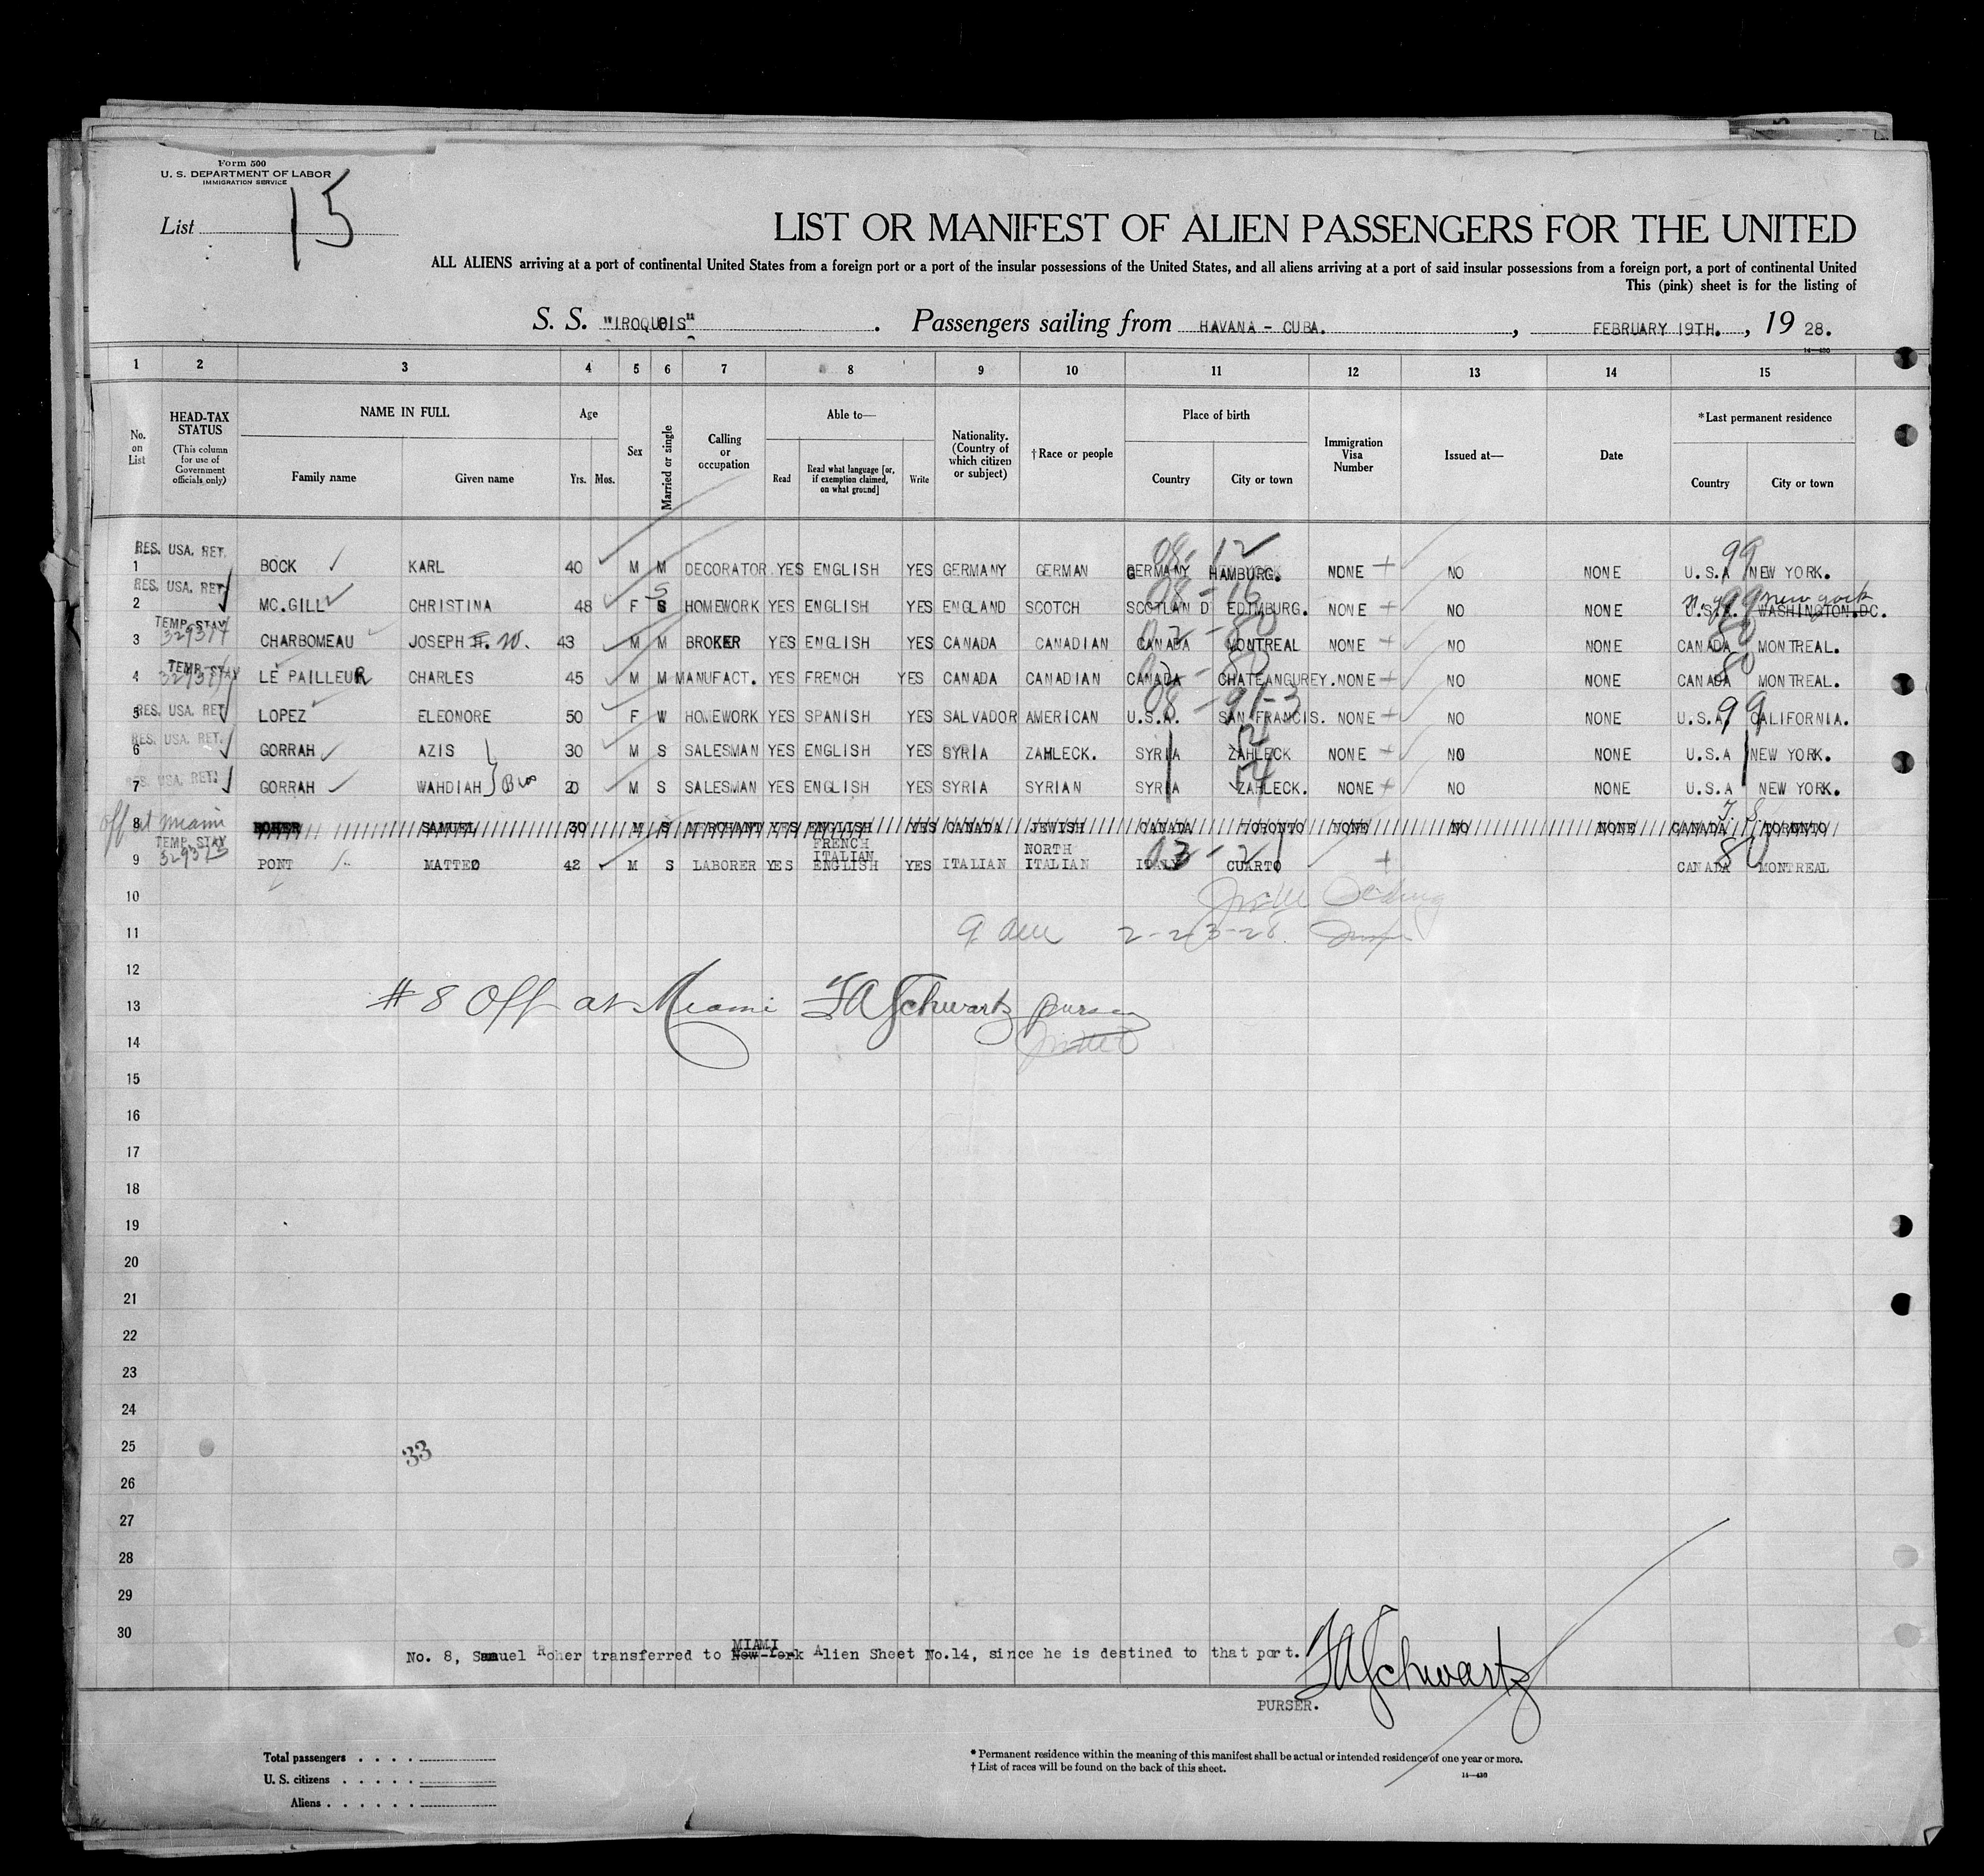 Form 500
U. S. DEPARTMENT OF LABOR
IMMIGRATION SERVICE
List 15
LIST OR MANIFEST OF ALIEN PASSENGERS FOR THE UNITED
ALL ALIENS arriving at a port of continental United States from a foreign port or a port of the insular possessions of the United States, and all aliens arriving at a port of said insular possessions from a foreign port, a port of continental United
This (pink) sheet is for the listing of
S. S. "IROQUOIS" . Passengers sailing from HAVANA - CUBA. , FEBRUARY 19TH. , 19 28.
14—430
1 2 3 4 5 6 7 8 9 10 11 12 13 14 15
No. on List
HEAD-TAX STATUS (This column for use of Government officials only)
NAME IN FULL Family name Given name
Age Yrs. Mos.
Sex
Married or single
Calling or occupation
Able to— Read Read what language [or, if exemption claimed, on what ground] Write
Nationality. (Country of which citizen or subject)
†Race or people
Place of birth Country City or town
Immigration Visa Number
Issued at—
Date
*Last permanent residence Country City or town
08-12 99
RES. USA. RET.
1 BOCK KARL 40 M M DECORATOR YES ENGLISH YES GERMANY GERMAN GERMANY HAMBURG. NONE + NO NONE U.S.A NEW YORK.
RES. USA. RET. S 08-16 n.y. 99 New york
2 MC.GILL CHRISTINA 48 F S HOMEWORK YES ENGLISH YES ENGLAND SCOTCH SCOTLAN D EDIMBURG. NONE + NO NONE U.S.A. WASHINGTON.DC.
TEMP. STAY 329374 02-80 80
3 CHARBOMEAU JOSEPH H. W. 43 M M BROKER YES ENGLISH YES CANADA CANADIAN CANADA MONTREAL NONE + NO NONE CANADA MONTREAL.
TEMP. STAY 80
4 LE PAILLEUR CHARLES 45 M M MANUFACT. YES FRENCH YES CANADA CANADIAN CANADA CHATEANGUREY. NONE + NO NONE CANADA MONTREAL.
RES. USA. RET. 08-91-3 99
5 LOPEZ ELEONORE 50 F W HOMEWORK YES SPANISH YES SALVADOR AMERICAN U.S.A. SAN FRANCIS. NONE + NO NONE U.S.A. CALIFORNIA.
RES. USA. RET.
6 GORRAH AZIS 30 M S SALESMAN YES ENGLISH YES SYRIA ZAHLECK. SYRIA ZAHLECK NONE + NO NONE U.S.A NEW YORK.
RES. USA. RET.
7 GORRAH WAHDIAH Bros 20 M S SALESMAN YES ENGLISH YES SYRIA SYRIAN SYRIA ZAHLECK. NONE + NO NONE U.S.A NEW YORK.
off at Miami
8 ROHER SAMUEL 30 M S MERCHANT YES ENGLISH YES CANADA JEWISH CANADA TORONTO NONE NO NONE CANADA TORONTO
TEMP. STAY 329375 FRENCH ITALIAN NORTH 03-21 80
9 PONT MATTEO 42 M S LABORER YES ENGLISH YES ITALIAN ITALIAN ITALY CUARTO + CANADA MONTREAL
10
11 2-23-28
12
13 # 8 Off at Miami FA Schwartz purser
14
15
16
17
18
19
20
21
22
23
24
25 33
26
27
28
29
30
MIAMI
No. 8, Samuel Roher transferred to New York Alien Sheet No.14, since he is destined to that port.
FA Schwartz
PURSER.
Total passengers . . . .
U. S. citizens . . . . .
Aliens . . . . . .
* Permanent residence within the meaning of this manifest shall be actual or intended residence of one year or more.
† List of races will be found on the back of this sheet.
14—430